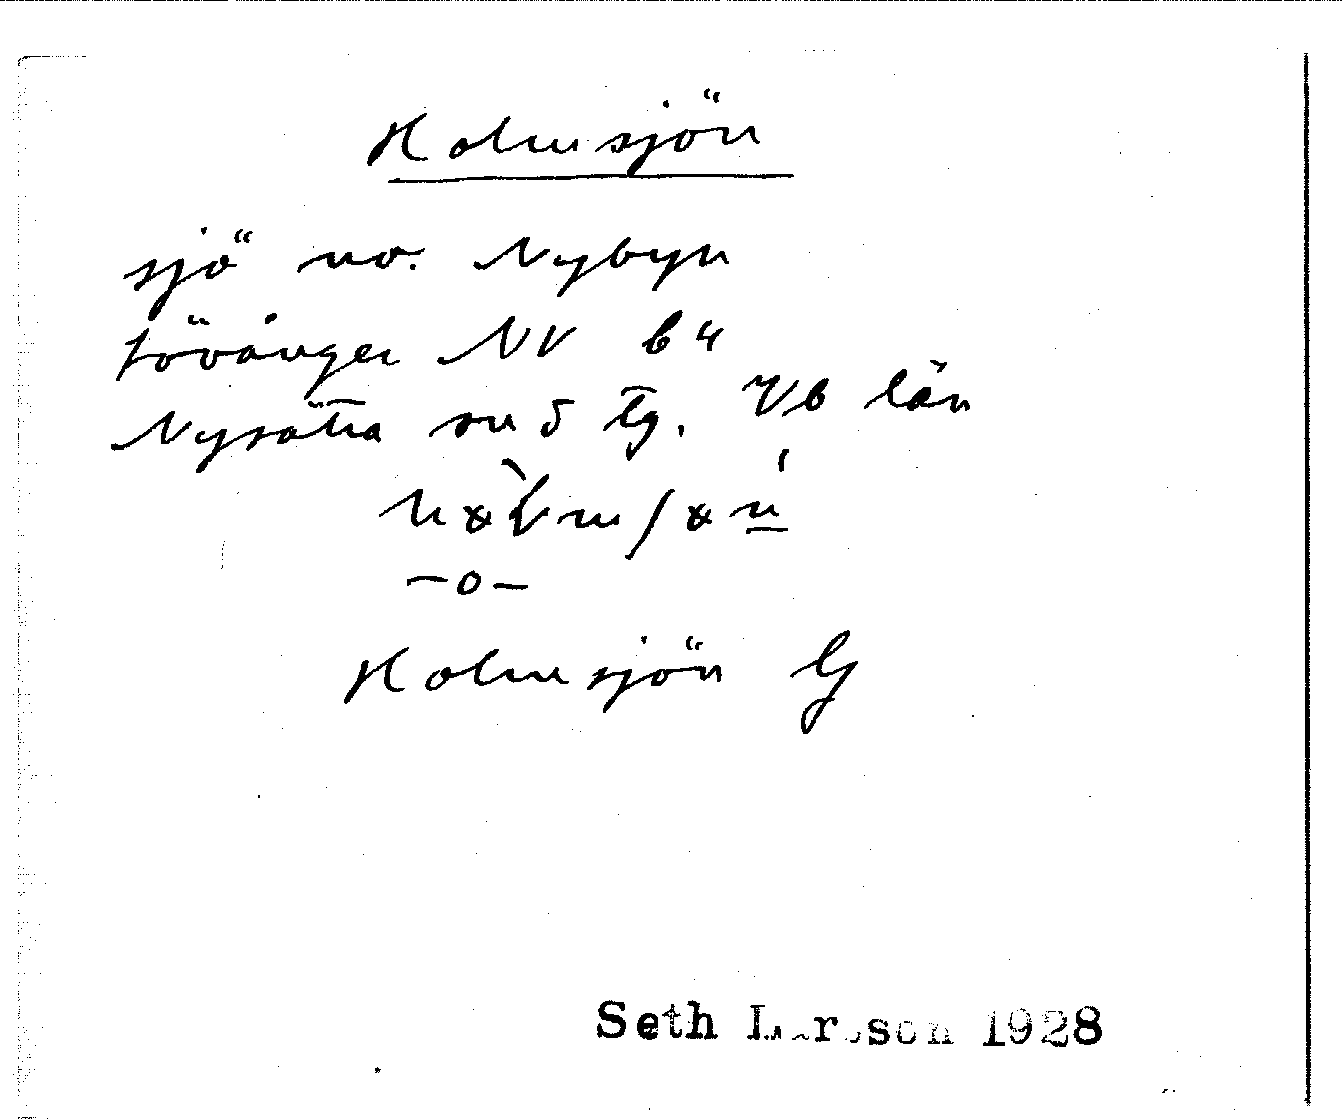 Holmsjön
sjö no. Nybyn
Lövånger NV b4
Nysätra sn ö tg. Vb län
Holmsjön
Seth Larsson 1928